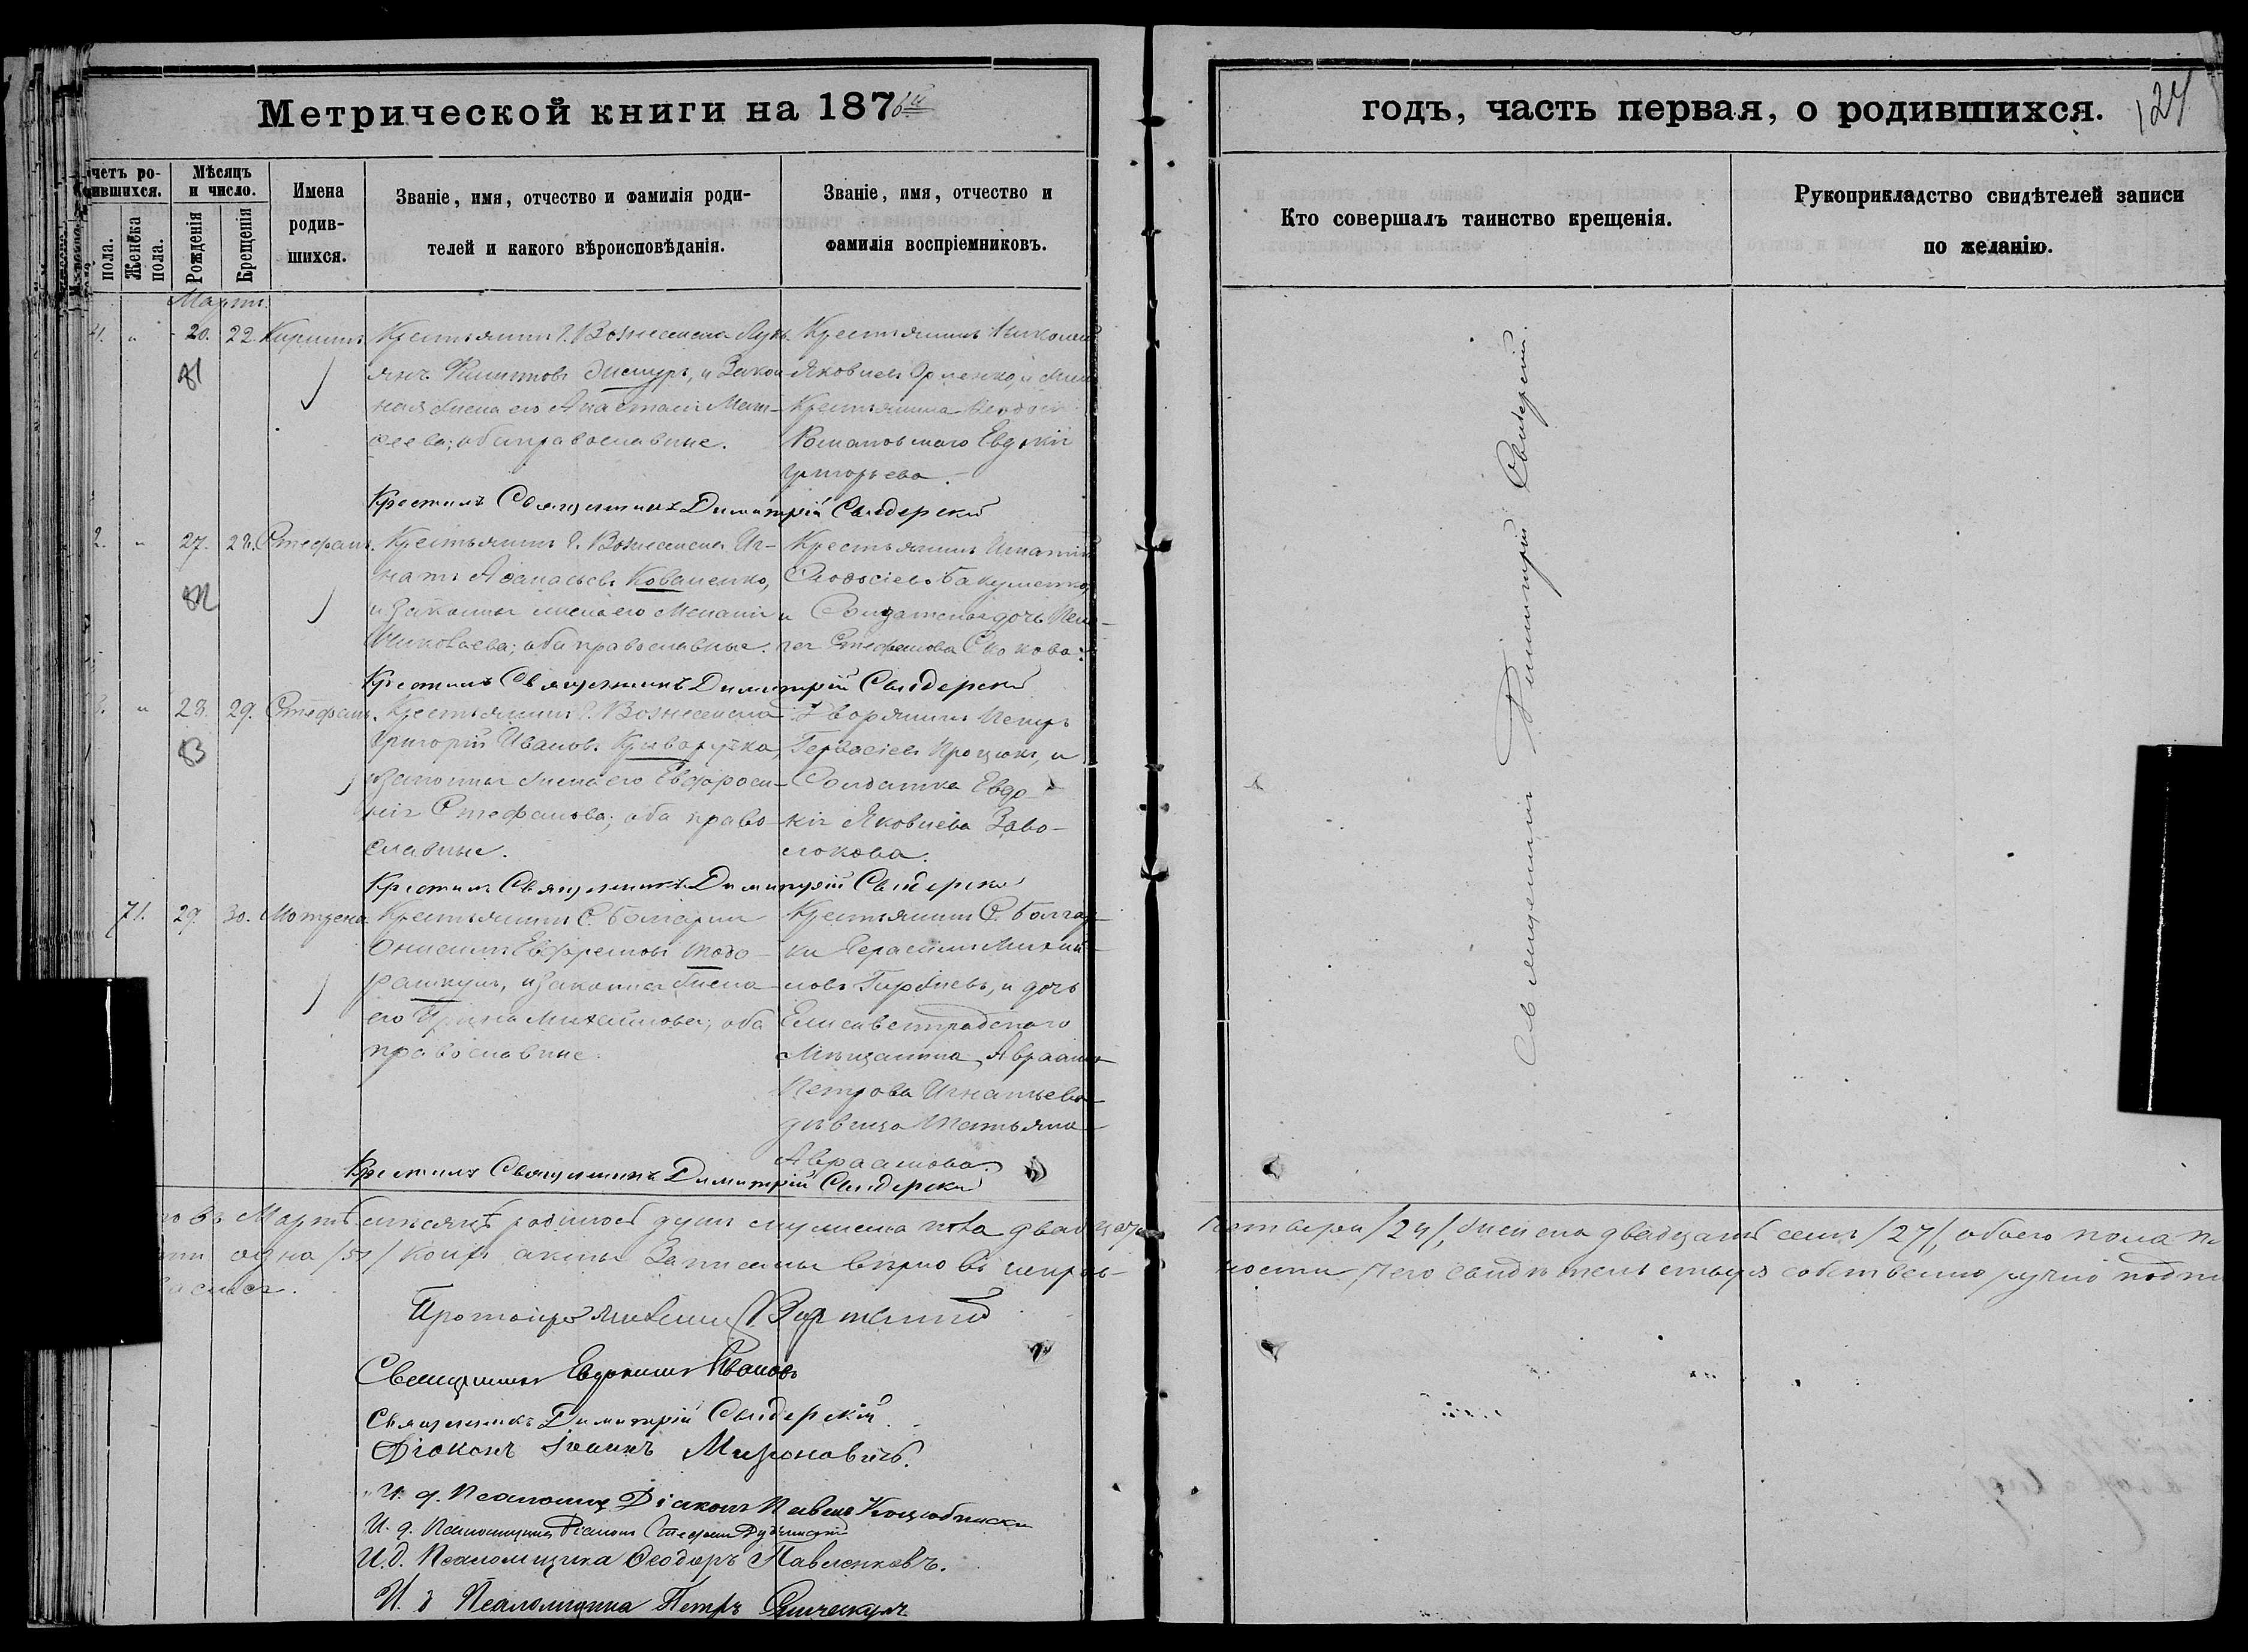 Метрической книги на 1876й
годъ, часть первая, о родившихся.
127
четъ ро-
дившихся.
пола.
Женска
пола.
Мѣсяцъ
и число.
Рожденія
Крещенія
Имена
родив-
шихся.
Званіе, имя, отчество и фамилія роди-
телей и какого вѣроисповѣданія.
Званіе, имя, отчество и
фамилія воспріемниковъ.
Кто совершалъ таинство крещенія.
Рукоприкладство свидѣтелей записи
по желанію.
Мартъ
20. 22. Крестьянинъ г. Вознесенска Лукь-
янъ Филиповъ и Закон-
ная жена его Анастасія Мат-
оба православные.
81
Крестьянинъ Николай
Яковлевъ и
Крестьянина
Романовскаго Евдокія
Григорьева.
Крестилъ Священникъ Димитрій Свидерскій
2. 27. 28. Стефанъ. Крестьянинъ г. Вознесенска Иг-
натъ Афанасьевъ Коваленко,
и законная жена его Меланія
Николаева; оба православные.
82
Крестьянинъ Игнатій
Феодосіевъ Бакуменко,
и Солдатская дочь
Стефанова Скокова.
Крестилъ Священникъ Димитрій Свидерскій
28. 29. Стефанъ. Крестьянинъ г. Вознесенска
Григорій Ивановъ Криваручка,
и законная жена его Евфроси-
нія Стефанова; оба право-
славные.
83
Дворянинъ Петръ
Гервасіевъ Процюкъ, и
Солдатка Евдо-
кія Яковлева Заво-
локова.
Крестилъ Священникъ Димитрій Свидерскій
71. 29. 30. Мотрена Крестьянинъ С. Болгарки
Онисимъ Ефремовъ Тодо-
рашкулъ, и законная жена
его Ирина Михайлова; оба
православные.
Крестьянинъ С. Болгар-
ки Герасимъ Михай-
ловъ и дочь
Елисаветградскаго
Мѣщанина Авраама
Петрова Игнатьева
дѣвица Татьяна
Авраамова.
Крестилъ Священникъ Димитрій Свидерскій
Священникъ Димитрій Свидерскій.
въ Мартѣ мѣсяцѣ родилось душъ мужеска пола двадцать
четыре /24/, женска двадцать семь /27/, обоего пола
одна /51/ коихъ акты Записаны вѣрно въ исправ-
ности, чего свидѣтельствуя собственно ручно подпи
Протоіерей
Священникъ Евдокимъ Ивановъ
Священникъ Димитрій Свидерскій.
Діаконъ Іоаннъ Мироновичъ.
И. д. Псаломщ. Діаконъ Павелъ Коцюбинскій
И. д. Псаломщика Діаконъ Стефанъ
И. д. Псаломщика Феодоръ Павленковъ.
И. д Псаломщика Петръ